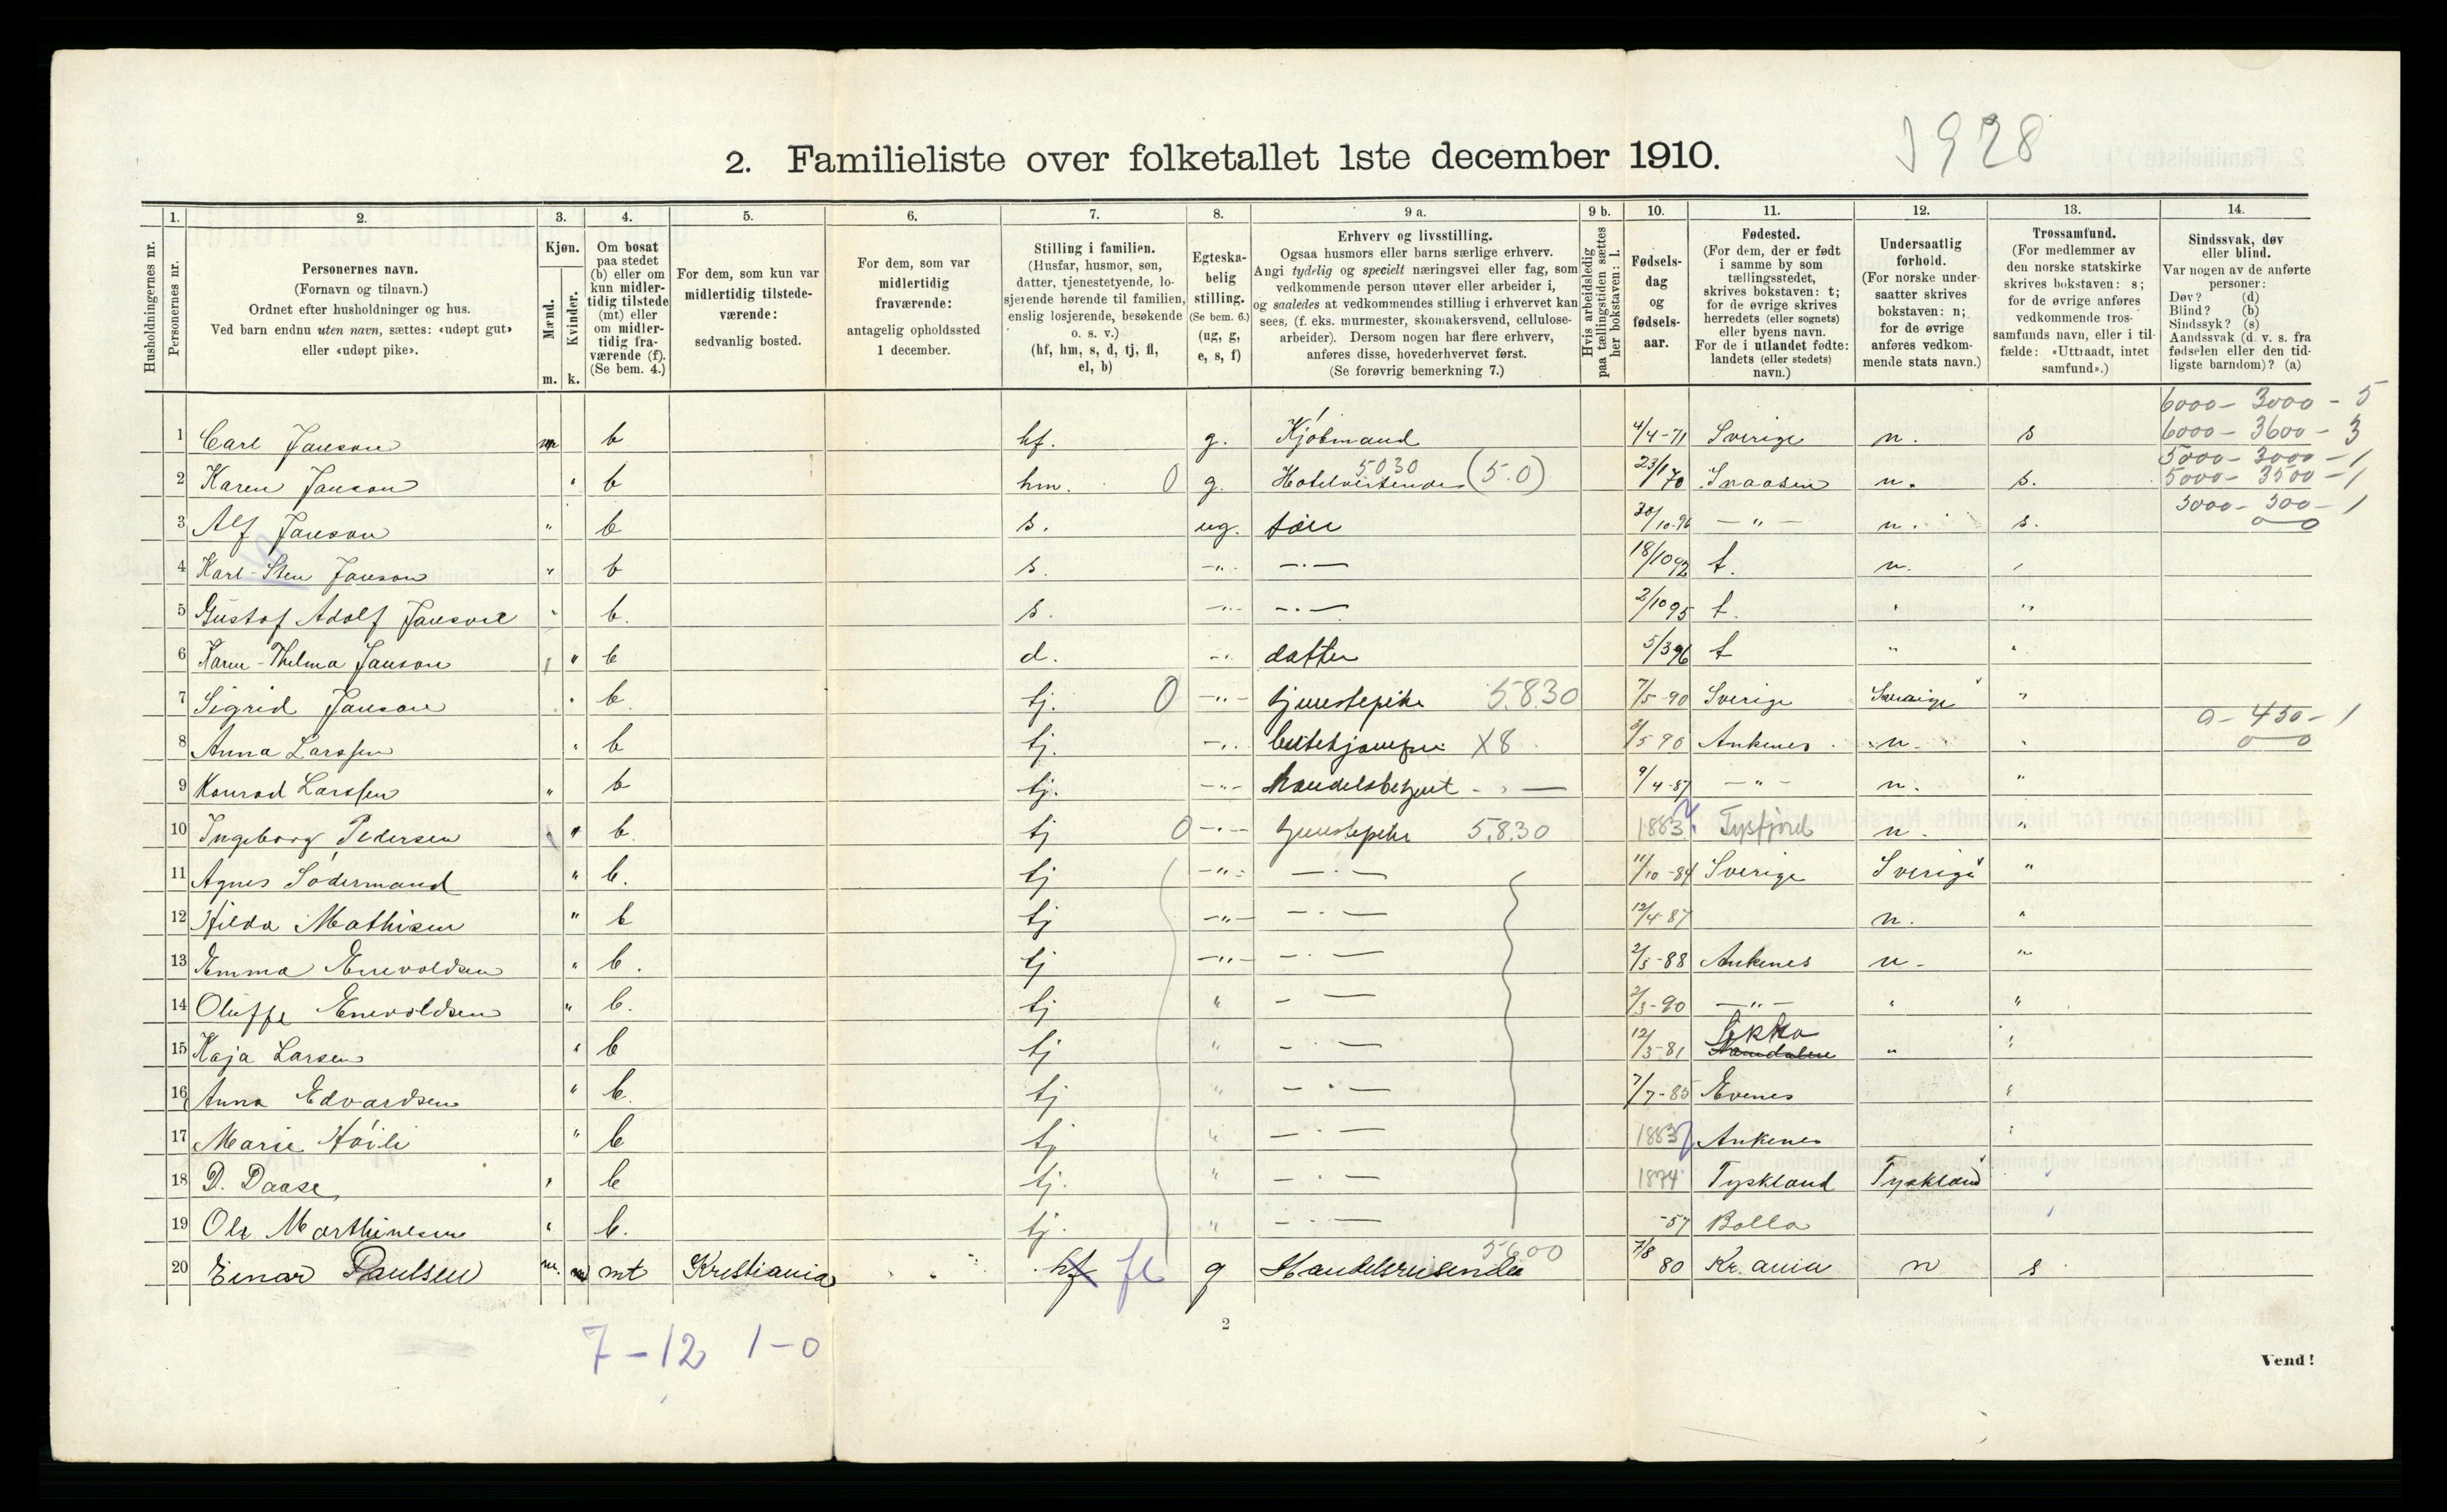 J928
2. Familieliste over folketallet 1ste december 1910.
1. 2. 3. 4. 5. 6. 7. 8. 9 a. 9 b. 10. 11. 12. 13. 14.
Husholdningernes nr.
Personernes nr.
Personernes navn.
(Fornavn og tilnavn.)
Ordnet efter husholdninger og hus.
Ved barn endnu uten navn, sættes: «udøpt gut»
eller «udøpt pike».
Kjøn.
Mænd.
Kvinder.
m. k.
Om bosat
paa stedet
(b) eller om
kun midler-
tidig tilstede
(mt) eller
om midler-
tidig fra-
værende (f).
(Se bem. 4.)
For dem, som kun var
midlertidig tilstede-
værende:
sedvanlig bosted.
For dem, som var
midlertidig
fraværende:
antagelig opholdssted
1 december.
Stilling i familien.
(Husfar, husmor, søn,
datter, tjenestetyende, lo-
sjerende hørende til familien,
enslig losjerende, besøkende
o. s. v.)
(hf, hm, s, d, tj, fl,
el, b)
Egteska-
belig
stilling.
(Se bem. 6.)
(ug, g,
e, s, f)
Erhverv og livsstilling.
Ogsaa husmors eller barns særlige erhverv.
Angi tydelig og specielt næringsvei eller fag, som
vedkommende person utøver eller arbeider i,
og saaledes at vedkommendes stilling i erhvervet kan
sees, (f. eks. murmester, skomakersvend, cellulose-
arbeider). Dersom nogen har flere erhverv,
anføres disse, hovederhvervet først.
(Se forøvrig bemerkning 7.)
Hvis arbeidsledig
paa tællingstiden sættes
her bokstaven: l.
Fødsels-
dag
og
fødsels-
aar.
Fødested.
(For dem, der er født
i samme by som
tællingsstedet,
skrives bokstaven: t;
for de øvrige skrives
herredets (eller sognets)
eller byens navn.
For de i utlandet fødte:
landets (eller stedets)
navn.)
Undersaatlig
forhold.
(For norske under-
saatter skrives
bokstaven: n;
for de øvrige
anføres vedkom-
mende stats navn.)
Trossamfund.
(For medlemmer av
den norske statskirke
skrives bokstaven: s;
for de øvrige anføres
vedkommende tros-
samfunds navn, eller i til-
fælde: «Uttraadt, intet
samfund».)
Sindssvak, døv
eller blind.
Var nogen av de anførte
personer:
Døv? (d)
Blind? (b)
Sindssyk? (s)
Aandssvak (d. v. s. fra
fødselen eller den tid-
ligste barndom)? (a)
6000 - 3000 - 5
1 Carl Janson m b hf. g. Kjøbmand 4/4-71 Sverige n. s 6000 - 3600 - 3
5000 - 3000 - 1
2 Karen Janson " b hm. 0 g. 5030 (5.0) 23/1 70 n. s. 5000 - 3500 - 1
3000 - 300 - 1
3 Alf Janson " b s. ug. søn 30/10-96 — " — n. s. 0 0
4 Karl-Sten Janson " b s. —"— — . — 18/10 92 t. n.
5 Gustaf Adolf Janson " b. s. —"— — . — 2/10 95 t. " "
6 Karen-Thelma Janson " b d. —"— datter 5/3 96 t " "
7 Sigrid Janson " b tj. 0 —"— tjenestepike 5.830 7/5-90 Sverige Sverige "
0 - 450 - 1
8 Anna Larssen " b tj. —"— X8 90 Ankenes n. " 0 0
9 Konrad Larssen " b tj. —"— handelsbetjent 9/4-87 — " — n. "
10 Ingeborg Pedersen " b. tj 0 —"— tjenestepike 5.8.30 1883 Tysfjord n. "
11 Agnes Södermand " b. tj —"— — . — 11/10-84 Sverige Sverige "
12 Hilda Mathisen " b tj —"— — . — 12/4-87 n. "
13 Emma Enevoldsen " b. tj —"— — . — 2/5-88 Ankenes n. "
14 Oluffe Enevoldsen " b. tj " — — 2/3-90 — " — " "
15 Kaja Larsen " b tj " — . — 12/5-81 Lekka Namdalen " "
16 Anna Edvardsen " b. tj " — . — 7/7-85 Evenes "
17 Marie Höili " b tj " — . — 1883 Ankenes "
18 D. Daase " b tj. " — . — 1874 Tyskland Tyskland "
19 Ole Marthinesen " b. tj. " — . — -57 Balla "
20 Einar Paulsen m. mt Kristiania hf fl g Handelsreisende 5600 7/8 80 Kr.ania n s
2
7-12 1-0
Vend!